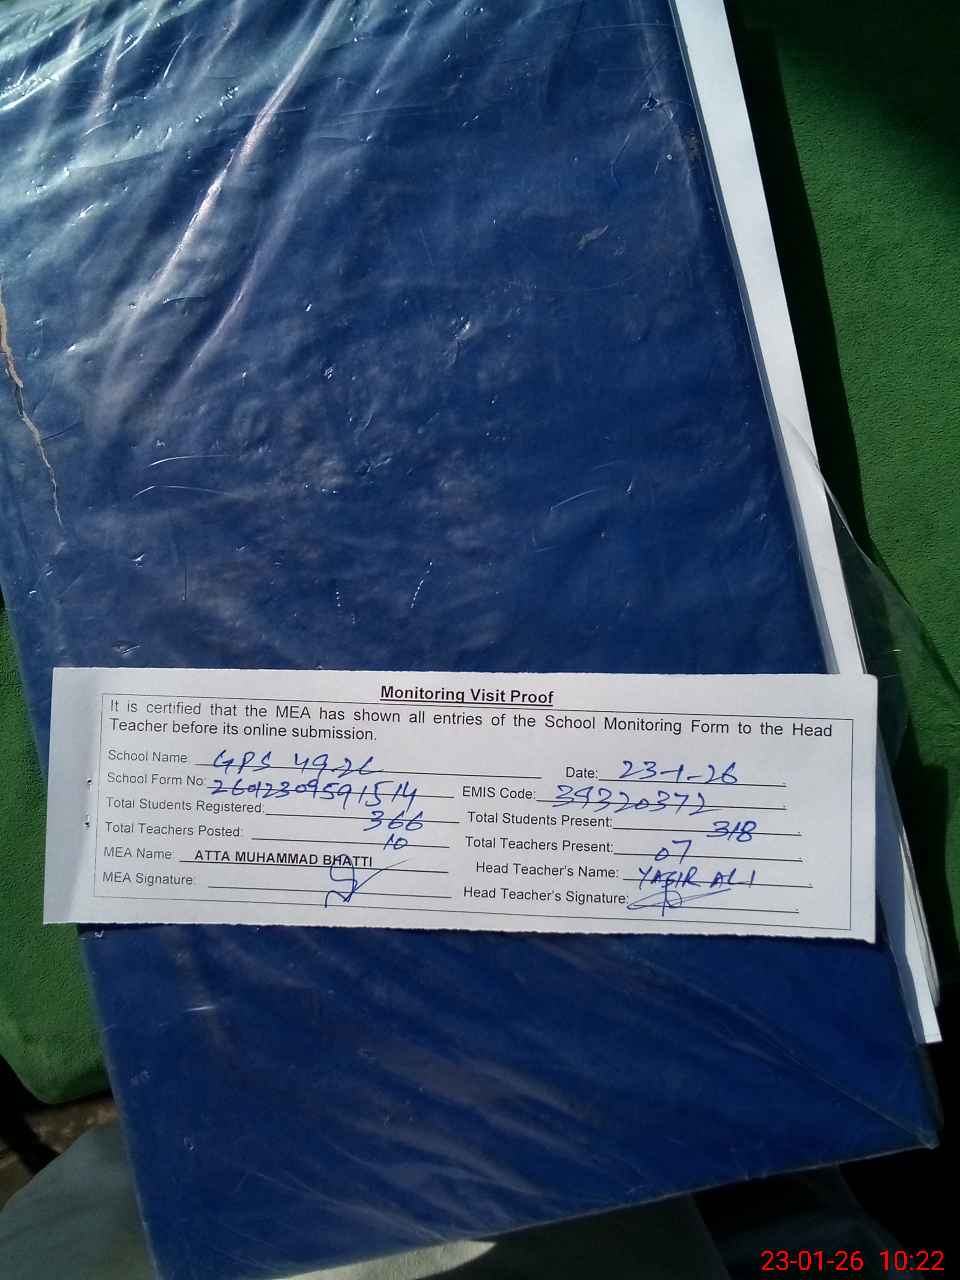 Monitoring Visit Proof
It is certified that the MEA has shown all entries of the School Monitoring Form to the Head
Teacher before its online submission.
School Name: GPS 49-2L Date: 23-1-26
School Form No: EMIS Code: 39320372
Total Students Registered: 366 Total Students Present: 318
Total Teachers Posted: 10 Total Teachers Present: 07
MEA Name ATTA MUHAMMAD BHATTI Head Teacher's Name: YASIR ALI
MEA Signature: Head Teacher's Signature:
23-01-26 10:22